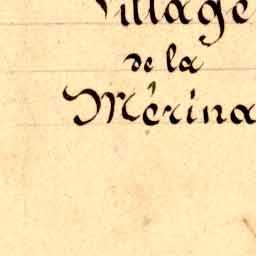 Village
de la
Mérina